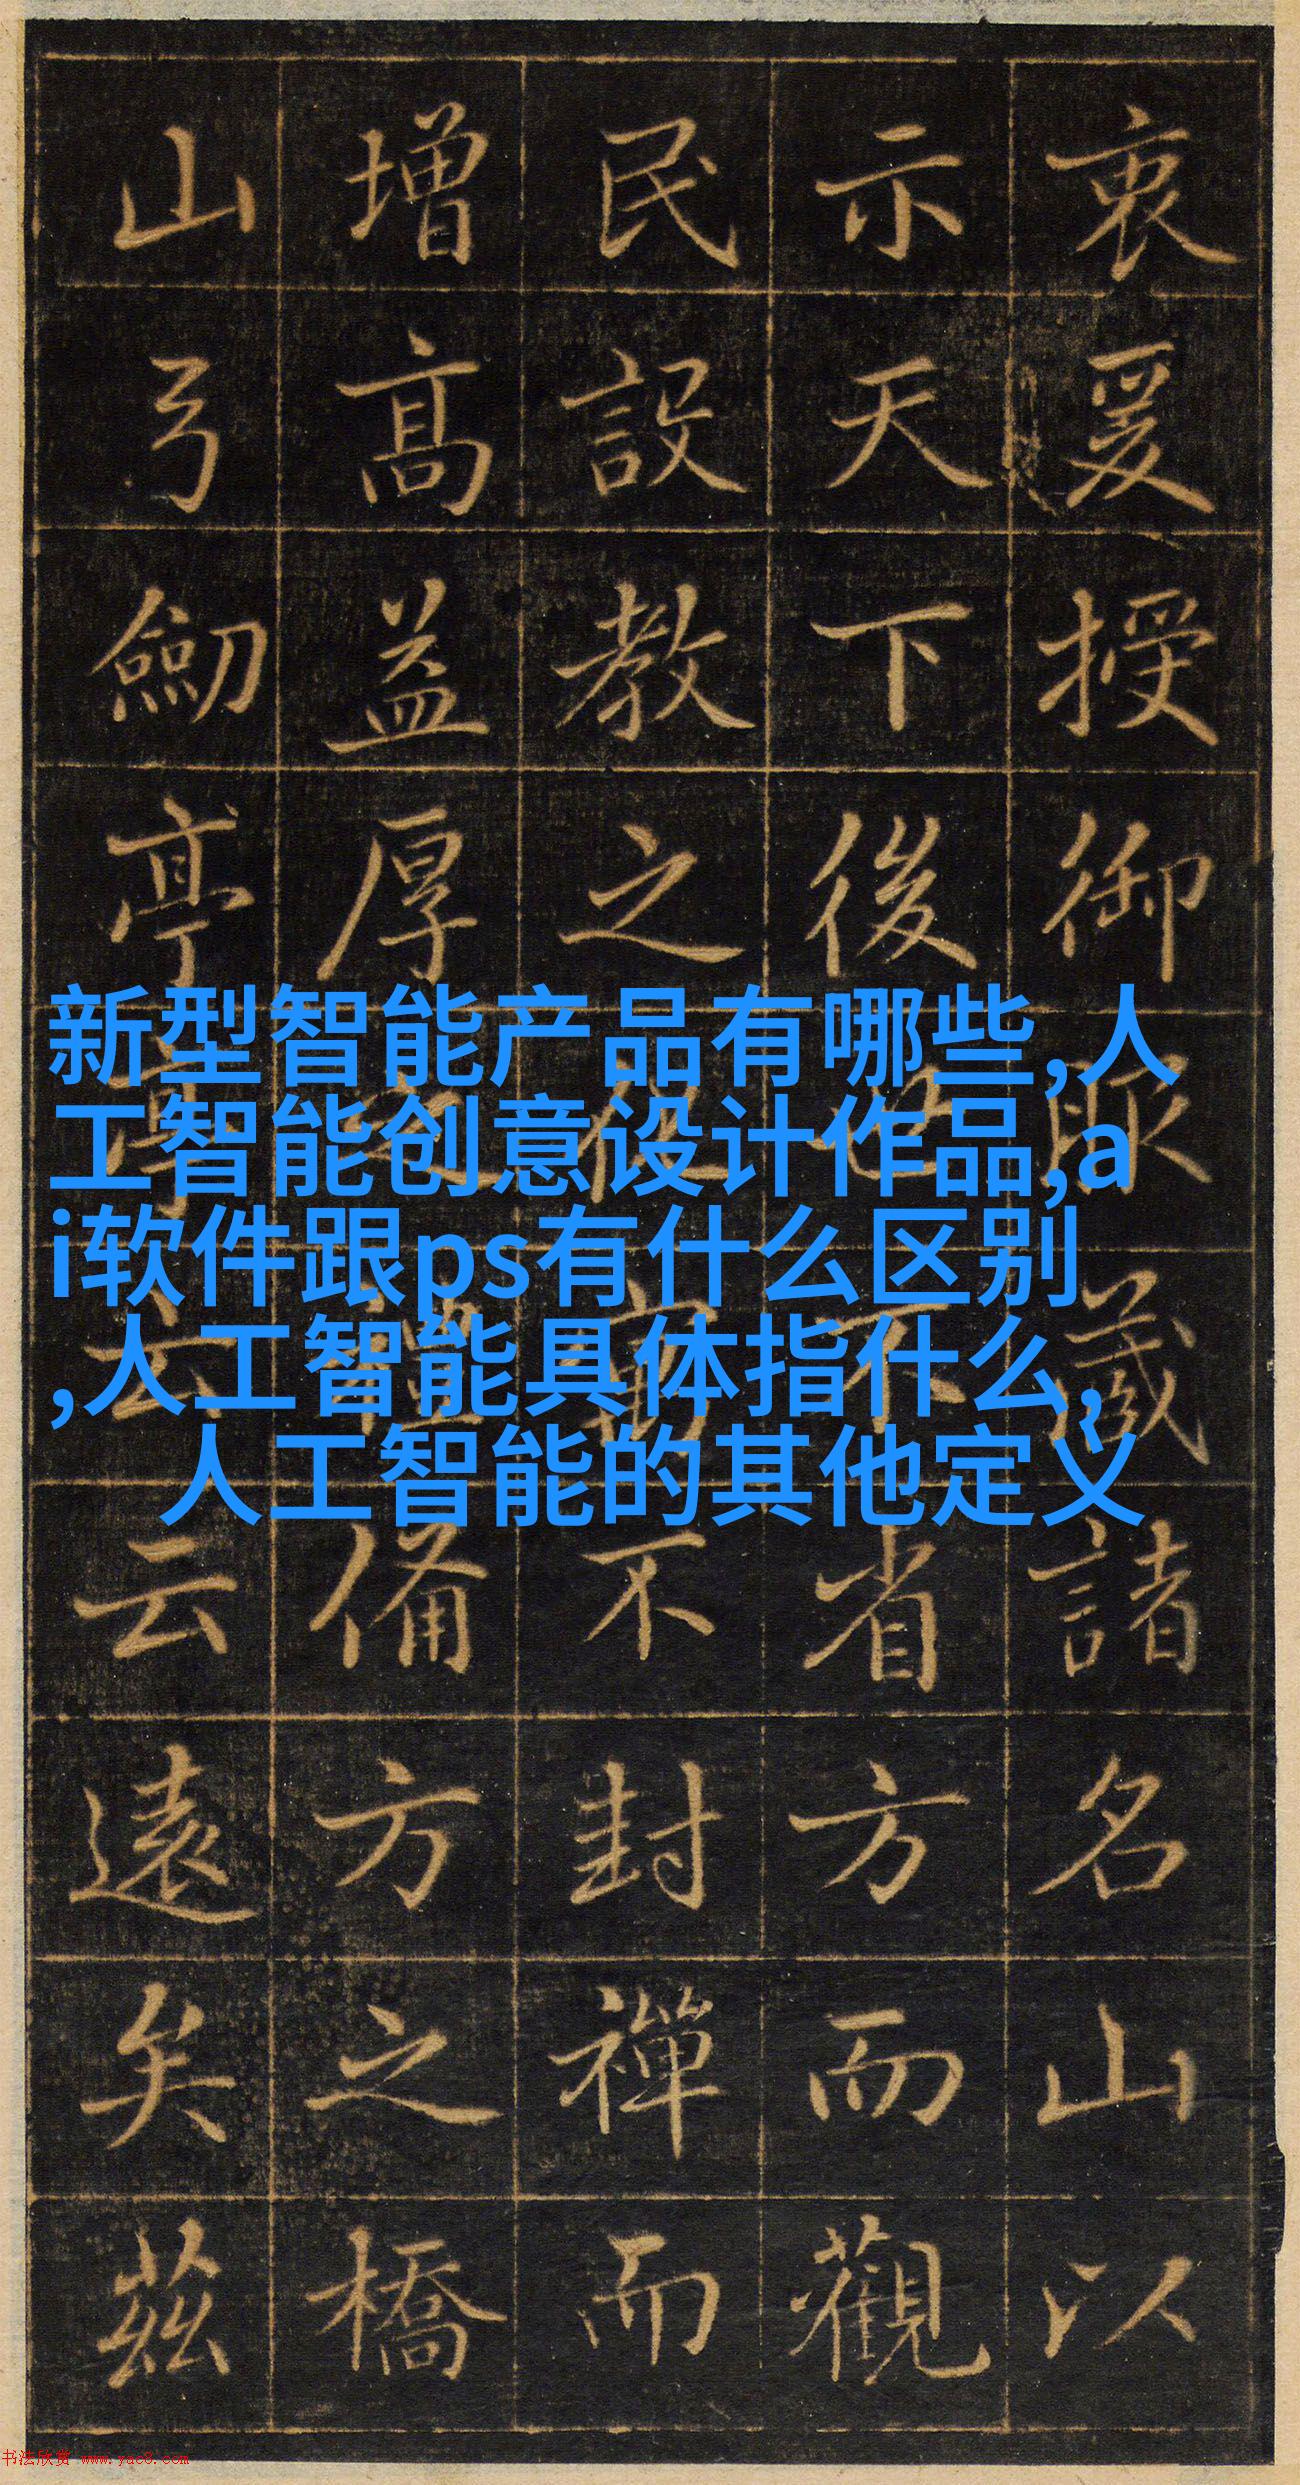 衷爰授御諸名山以
示天下後世不省方而觀
民設教之不封禪而
增高益厚之禮備方之橋
山弓劒亭亭云云遠矣茲
新型智能产品有哪些,人
工智能创意设计作品,a
i软件跟ps有什么区别
,人工智能具体指什么,
人工智能的其他定义
书法欣赏 www.yac8.com